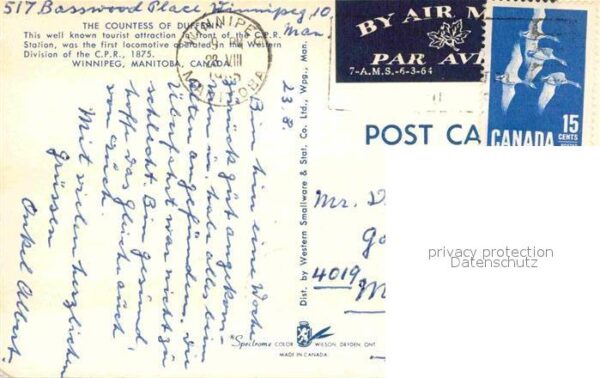 517 Basswood Place, Winnipeg 10,
Man.
THE COUNTESS OF DUFFERIN
This well known tourist attraction in front of the C.P.R.
Station, was the first locomotive operated in the Western
Division of the C.P.R., 1875.
WINNIPEG, MANITOBA, CANADA.
WINNIPEG
VIII
MANITOBA
BY AIR M
PAR AVI
7-A.M.S.-6-3-64
15
CENTS
CANADA
POST CA
23.8.
Bin hier eine Woche
zurück gut angekom-
men u. habe alles beim
alten angefunden, die
Überfahrt war nicht zu
schlecht. Bin gesund
hoffe das gleiche auch
von euch.
Mit vielen herzlichen
Grüssen
Onkel Albert.
Dist. by Western Smallware & Stat. Co. Ltd., Wpg., Man.
Mr. D
4019
M
privacy protection
Datenschutz
Spectrome COLOR WILSON, DRYDEN, ONT
MADE IN CANADA